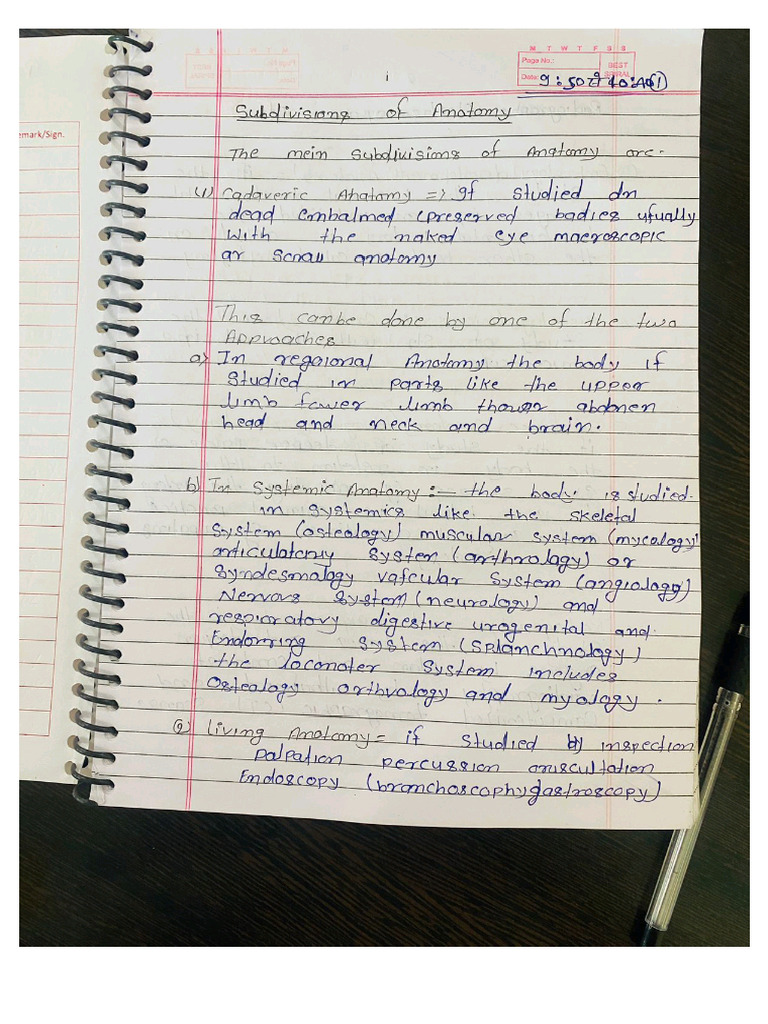 emark/Sign.
M T W T F S S
Page No.:
Date:
BEST SPIRAL
1
Subdivisions of Anatomy
The mein subdivisions of Anatomy are.
(1) Cadaveric Anatomy => If studied on
dead embalmed (preserved badies usually
With the naked eye macroscopic
ar Scnall anatomy
This canbe done by one of the two
Approaches
a) In regaional Anatomy the body if
Studied in parts like the upper
limb fower limb abdonen
head and neck and brain.
b) In Systemic Anatomy :- the body is studied
in systemics like the skeletal
System (ostealogy) muscular system (mycalogy)
articulatory System (arthralagy) or
Syndesmalogy vafcular System (angialogy)
Nervors System (neuralogy) and
respiratory digestive urogenital and
Endorring System (SPlanchnology)
the loconater System includes
Ostealagy orthvalogy and myalogy.
(2) living Anatomy = if studied by inspection
Palpation percussion auscultation
Endoscopy (branchoscophy gastroscopy)